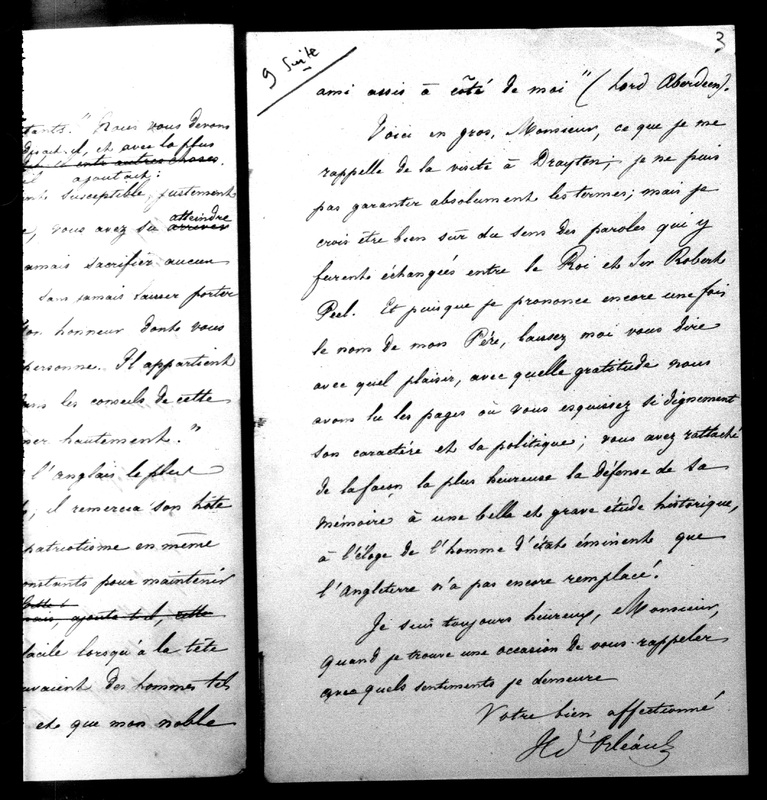 tants." "Nous vous devons
disait-il, et avec la plus
entr'autres choses.
il ajoutait:
susceptible, justement
vous avez su arriver atteindre
jamais sacrifier aucun
sans jamais laisser porter
honneur dont vous
personne. Il appartient
dans les conseils de cette
hautement."
l'anglais le plus
il remercia son hôte
patriotisme en même
constants pour maintenir
ajouta-t-il, cette
facile lorsqu'à la tête
avaient des hommes tels
et que mon noble
9 Suite
3
ami assis à côté de moi" (Lord Aberdeen).
Voici en gros, Monsieur, ce que je me
rappelle de la visite à Drayton; je ne puis
pas garantir absolument les termes; mais je
crois être bien sûr du sens des paroles qui y
furent échangées entre le Roi et Sir Robert
Peel. Et puisque je prononce encore une fois
le nom de mon Père, laissez moi vous dire
avec quel plaisir, avec quelle gratitude nous
avons lu les pages où vous esquissez si dignement
son caractère et sa politique; vous avez rattaché
de la façon la plus heureuse la défense de sa
mémoire à une belle et grave étude historique,
à l'éloge de l'homme d'état éminent que
l'Angleterre n'a pas encore remplacé.
Je suis toujours heureux, Monsieur,
quand je trouve une occasion de vous rappeler
avec quels sentiments je demeure
Votre bien affectionné
H d'Orléans